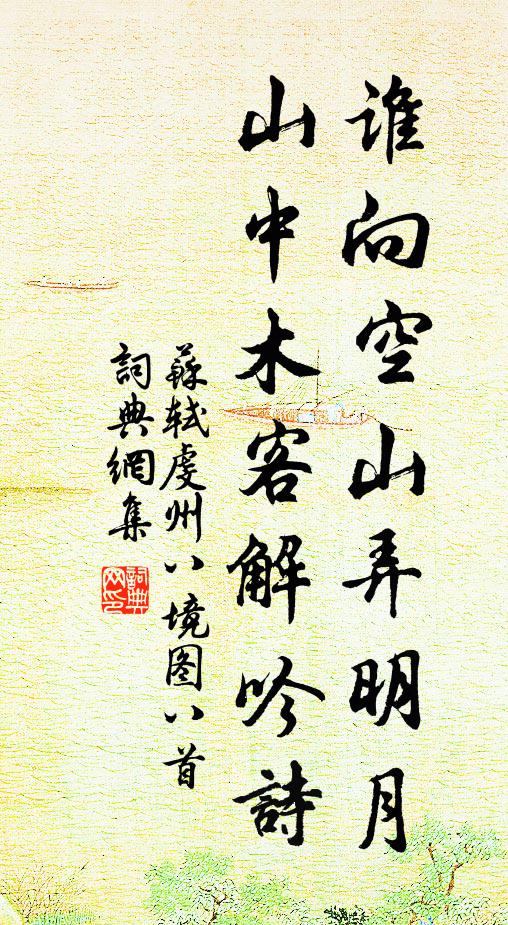 谁向空山弄明月
山中木客解吟詩
蘇軾虔州八境图八首
詞典網集
詞典
网印